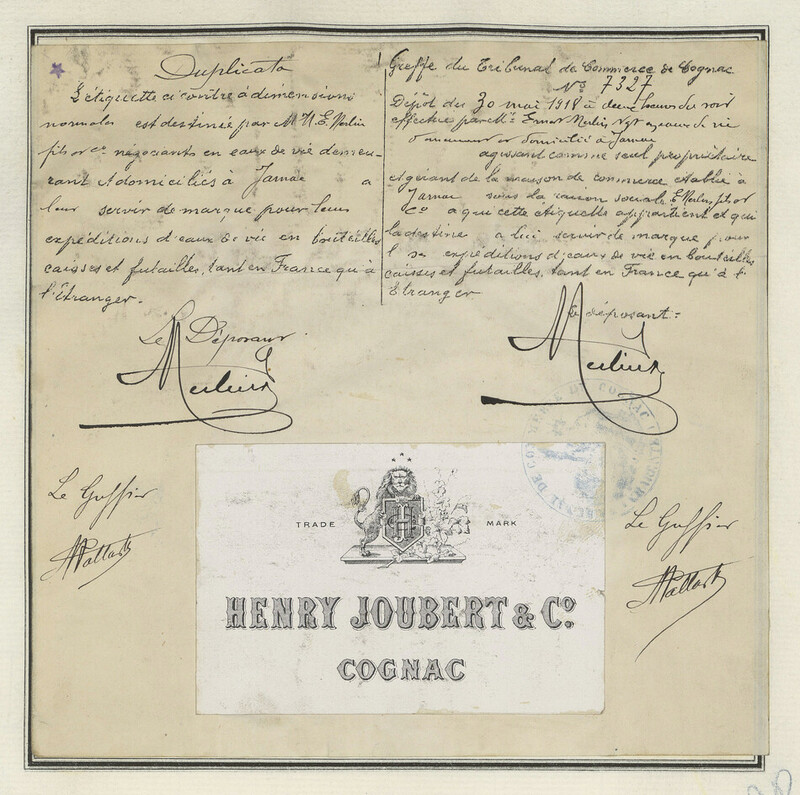 Duplicata
L'étiquette ci contre à dimensions
normales est destinée par M. N. E. Merlin
fils et Cie négociants en eaux de vie demeu-
rant & domiciliés à Jarnac a
leur servir de marque pour leurs
expéditions d'eaux de vie en bouteilles
caisses et futailles, tant en France qu'à
l'étranger.
Le Déposant
Merlin
Greffe du Tribunal de Commerce de Cognac
No 7327
Dépôt du 30 mai 1918 à deux heures du soir
effectué par Mr. Ernest Merlin, Ngt en eaux de vie
demeurant et domicilié à Jarnac
agissant comme seul propriétaire
et gérant de la maison de commerce établie à
Jarnac sous la raison sociale E. Merlin fils et
Co a qui cette étiquette appartient et qui
la destine a lui servir de marque pour
expéditions d'eaux de vie en bouteilles
caisses et futailles, tant en France qu'à l'
Etranger
Le déposant =
Merlin
Le Greffier
Le Greffier
TRIBUNAL DE COMMERCE DE COGNAC
TRADE MARK
HENRY JOUBERT & Co.
COGNAC